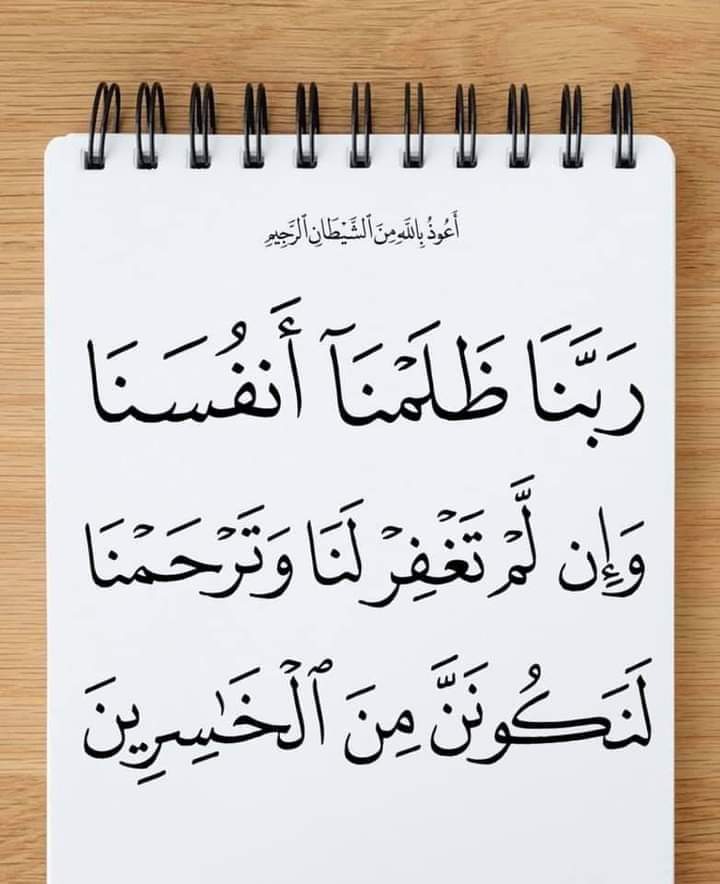 أَعُوذُ بِاللَّهِ مِنَ ٱلشَّيْطَانِ ٱلرَّجِيمِ
رَبَّنَا ظَلَمْنَآ أَنفُسَنَا
وَإِن لَّمْ تَغْفِرْ لَنَا وَتَرْحَمْنَا
لَنَكُونَنَّ مِنَ ٱلْخَـٰسِرِينَ